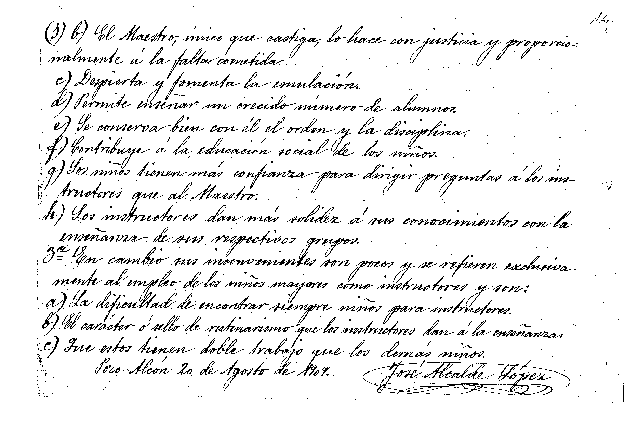 (3) b) El Maestro, único que castiga, lo hace con justicia y proporcio-
nalmente á la falta cometida.
c) Despierta y fomenta la emulación.
d) Permite enseñar un crecido número de alumnos.
e) Se conserva bien con él el orden y la disciplina.
f) Contribuye á la educación social de los niños.
g) Los niños tienen más confianza para dirigir preguntas á los ins-
tructores que al Maestro.
h) Los instructores dan más solidez á sus conocimientos con la
enseñanza de sus respectivos grupos.
3ª En cambio sus inconvenientes son pocos y se refieren exclusiva-
mente al empleo de los niños mayores como instructores y son:
a) La dificultad de encontrar siempre niños para instructores.
b) El carácter ó sello de rutinarismo que los instructores dan á la enseñanza.
c) Que estos tienen doble trabajo que los demás niños.
Alcón 20 de Agosto de
José Alcalde López